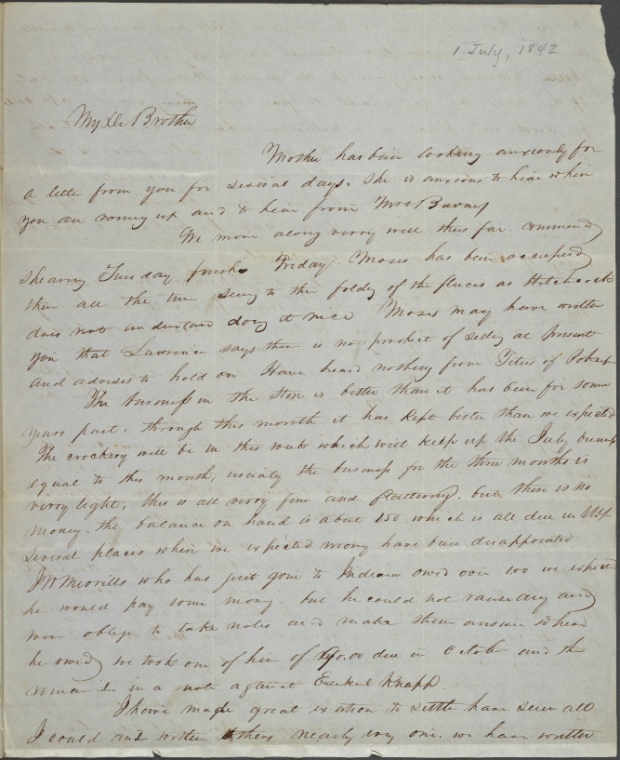 1 July, 1842
My Dr Brother
Mother has been looking anxiously for
a letter from you for several days. She is anxious to hear when
you are coming up and to hear from Mrs Burney
We move along verry well thus far commencd
shearing Tuesday finish Friday. Moses has been occupied
then all the time seing to the folding of the fleeces as Hitchcock
does not understand doing it nice Moses may have written
you that Lawrence says there is no prospect of selling at present
and advises to hold on Have heard nothing from Titus of
The business in the store is better than it has been for some
years past. through this month it has kept better than we expected
The crocking will be in this week which will keep up the July business
equal to this month, usually the business for the three months is
verry light, this is all verry fine and flattering. but there is no
money. the balance on hand is about 150 which is all due in
several places where we expected money have been disappointed
J W Merrills who has just gone to Indiana owed over 100 we expect
he would pay some money but he could not raise any and
were oblige to take notes and make them answer where
he owed we took one of him of 40.00 due in October and the
remainder in a note against Ezekiel Knapp.
I have made great exertion to settle have seen all
I could and written others nearly every one. we have written